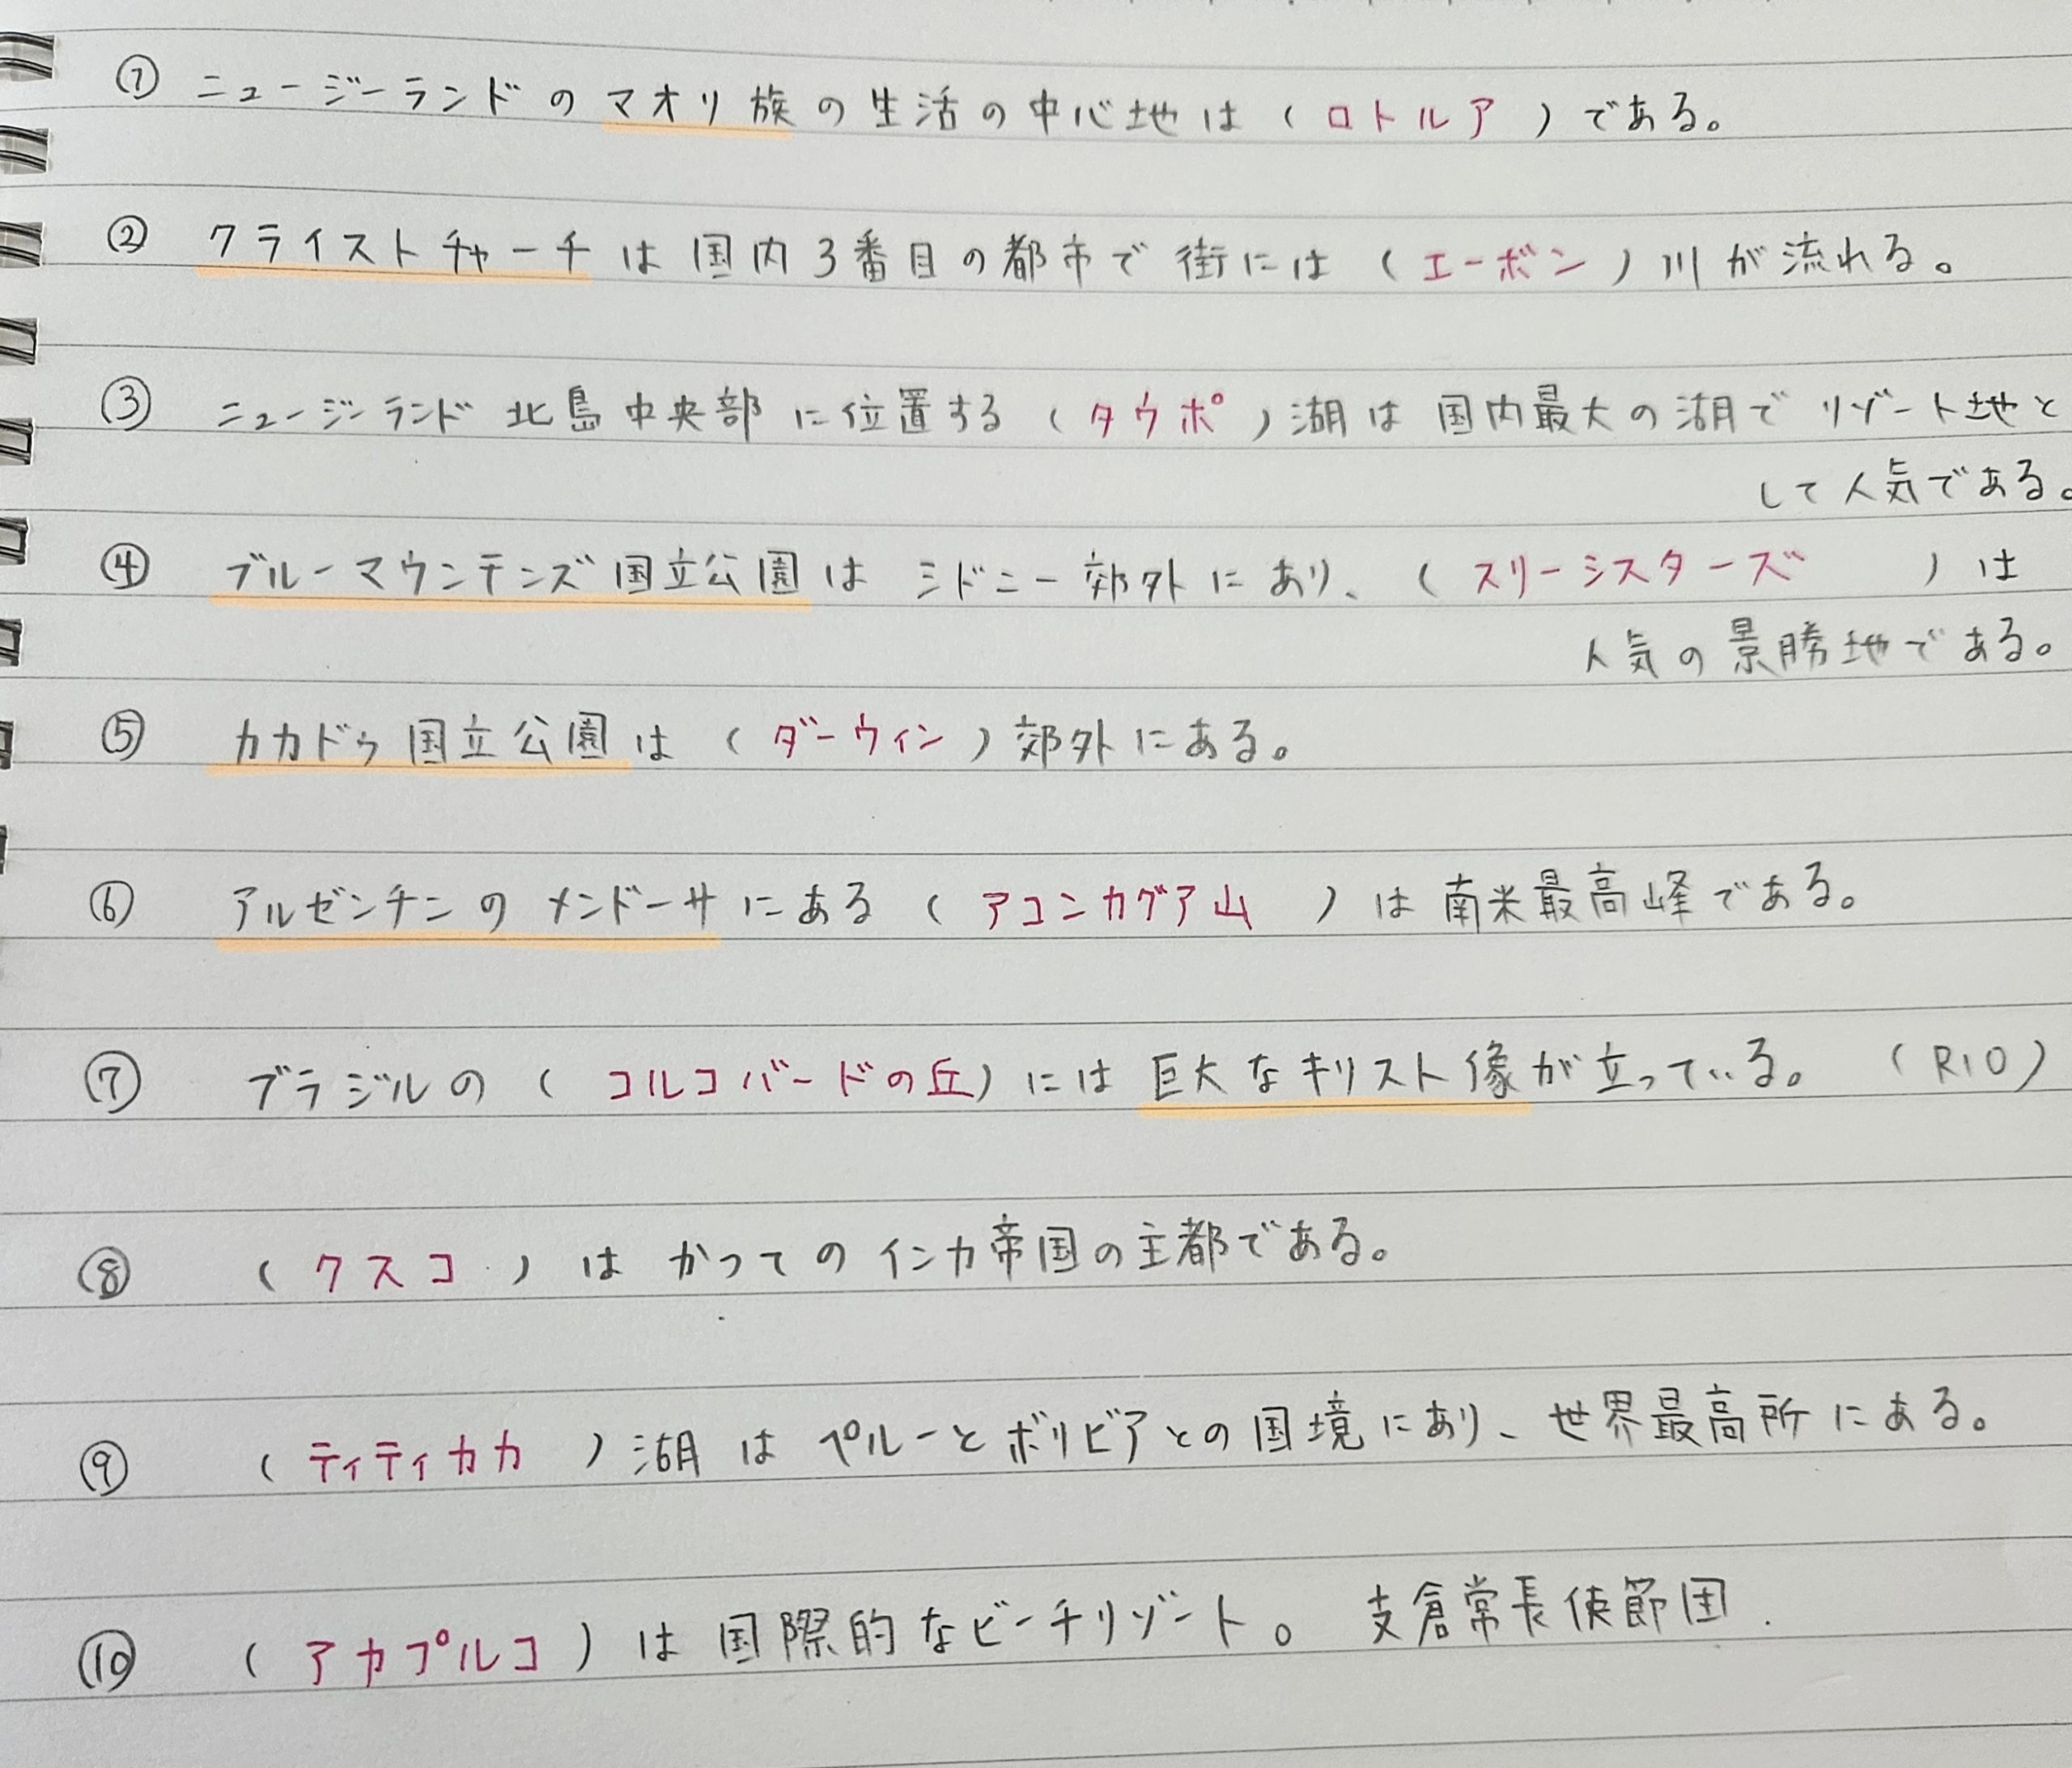 ① ニュージーランドのマオリ族の生活の中心地は(ロトルア)である。
② クライストチャーチは国内3番目の都市で街には(エーボン)川が流れる。
③ ニュージーランド北島中央部に位置する(タウポ)湖は国内最大の湖でリゾート地と
して人気である。
④ ブルーマウンテンズ国立公園はシドニー郊外にあり、(スリーシスターズ)は
人気の景勝地である。
⑤ カカドゥ国立公園は(ダーウィン)郊外にある。
⑥ アルゼンチンのメンドーサにある(アコンカグア山)は南米最高峰である。
⑦ ブラジルの(コルコバードの丘)には巨大なキリスト像が立っている。(RIO)
⑧ (クスコ)はかつてのインカ帝国の主都である。
⑨ (ティティカカ)湖はペルーとボリビアとの国境にあり、世界最高所にある。
⑩ (アカプルコ)は国際的なビーチリゾート。支倉常長使節団.